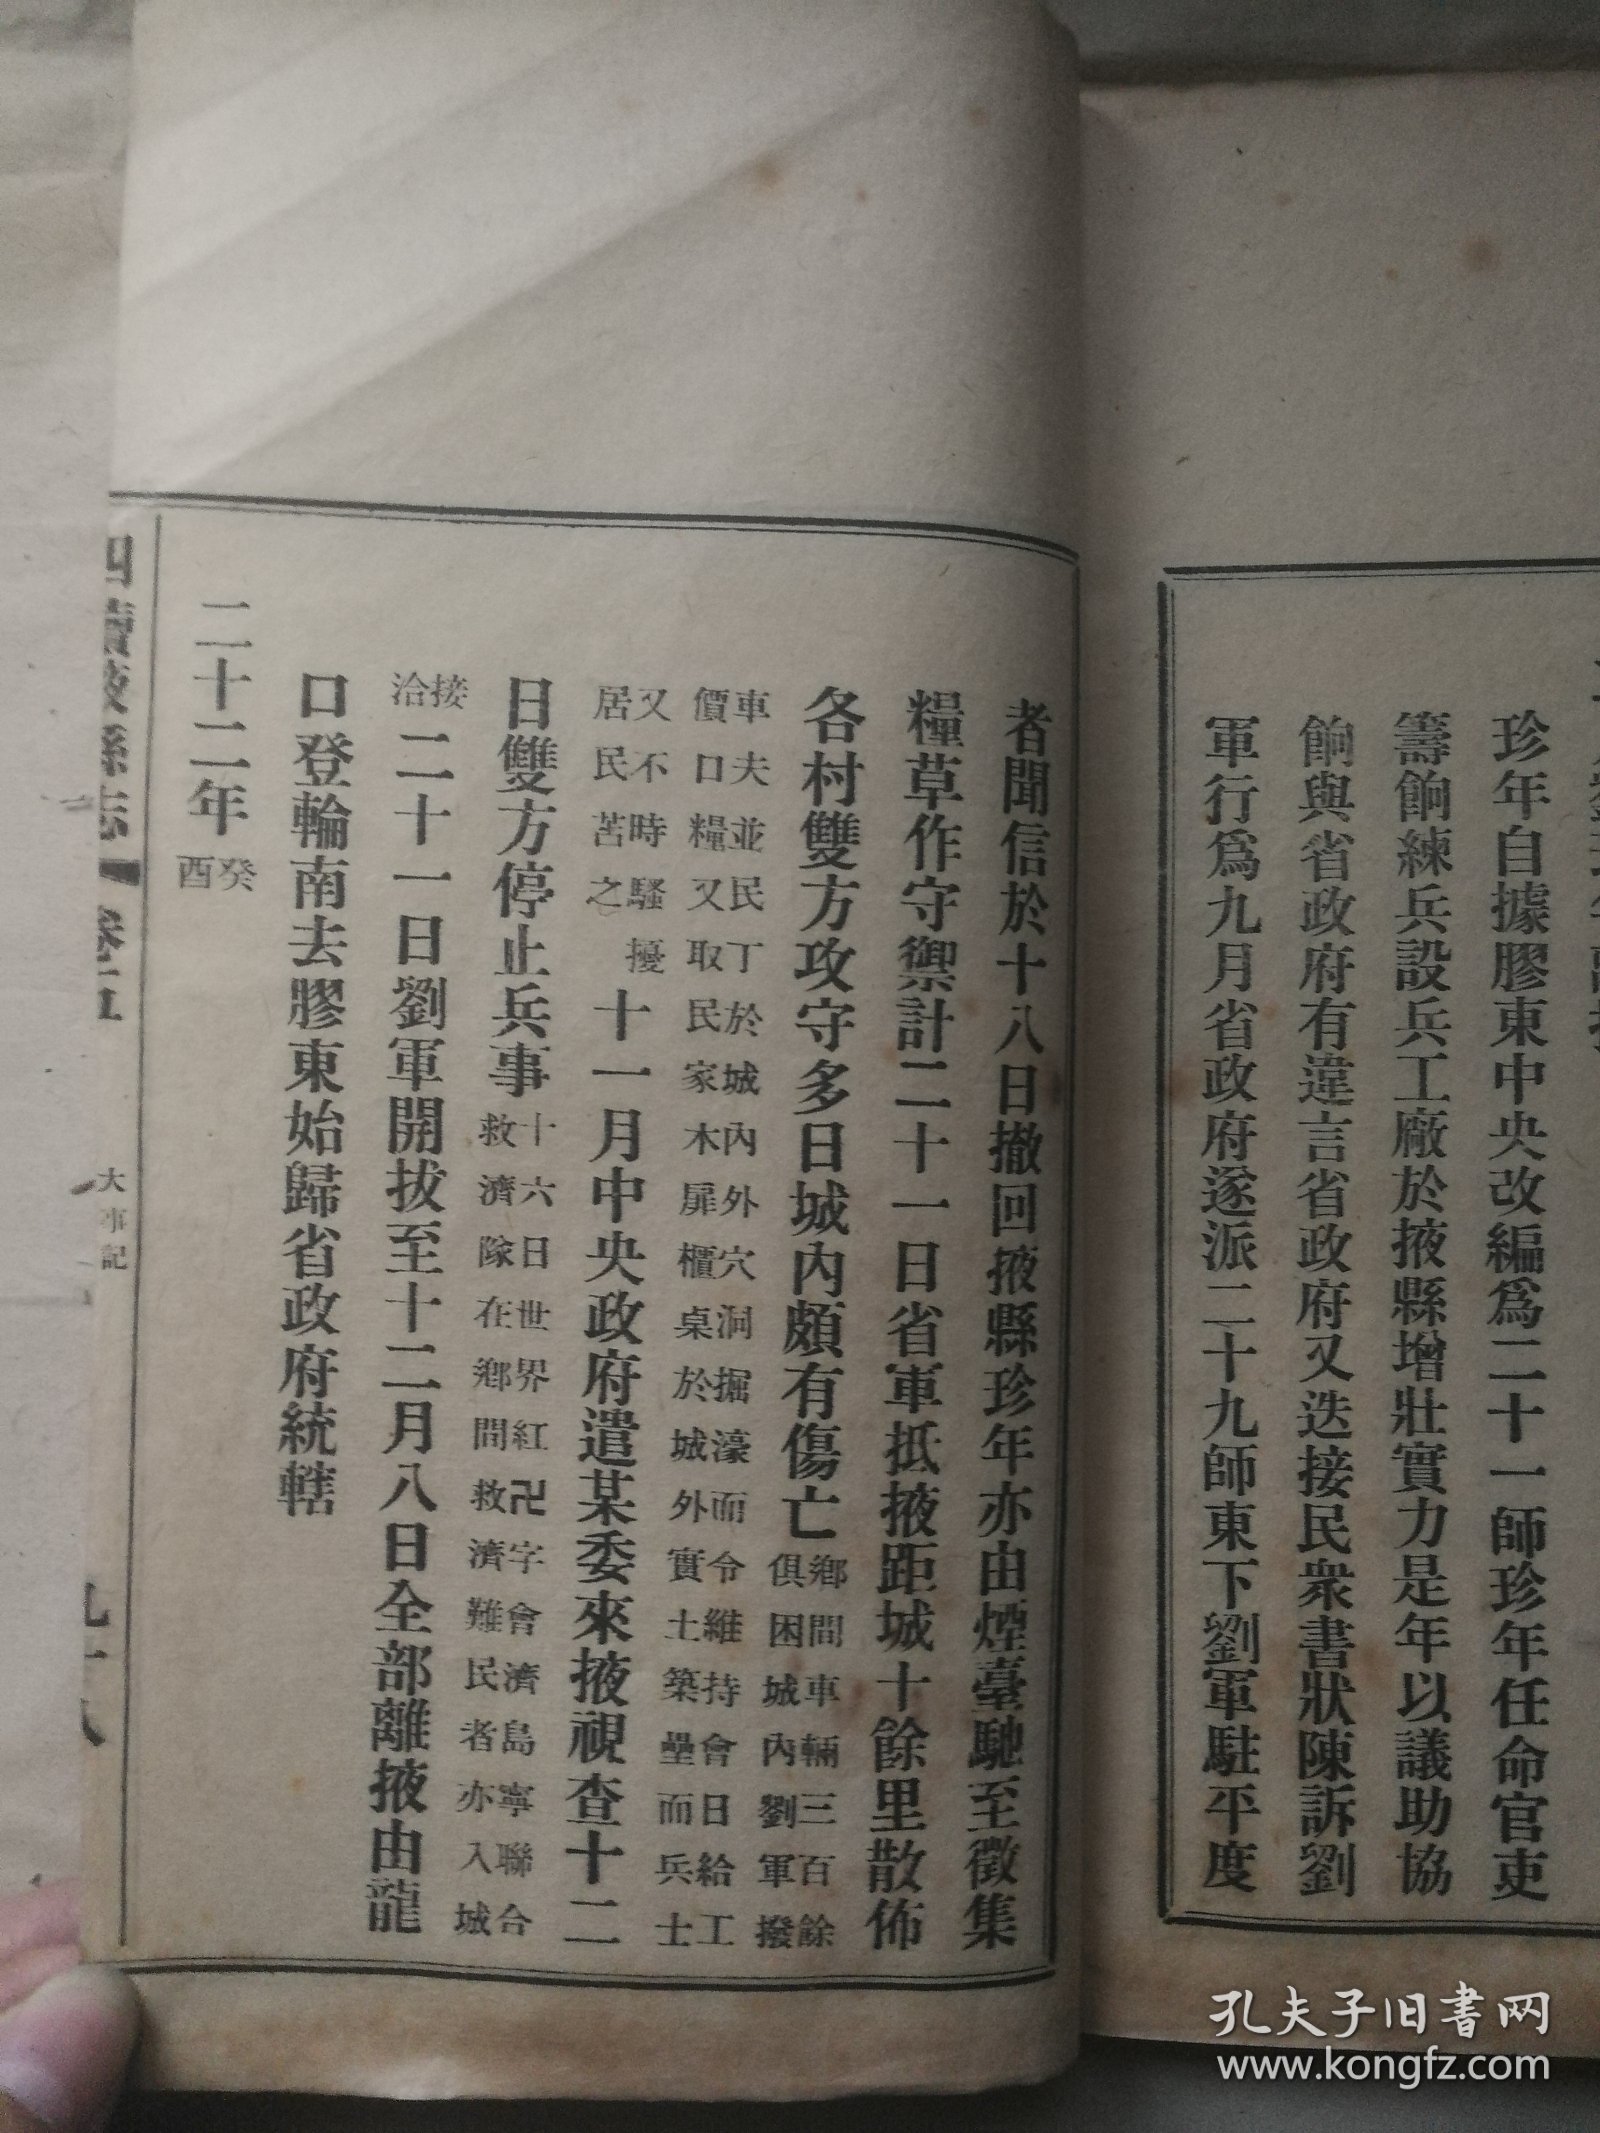 珍年自據膠東中央改編爲二十一師珍年任命官吏
籌餉練兵設兵工廠於掖縣增壯實力是年以議助協
餉與省政府有違言省政府又迭接民衆書狀陳訴劉
軍行爲九月省政府遂派二十九師東下劉軍駐平度
者聞信於十八日撤回掖縣珍年亦由煙臺馳至徵集
糧草作守禦計二十一日省軍抵掖距城十餘里散佈
各村雙方攻守多日城內頗有傷亡
鄉間車輛三百餘
俱困城內劉軍撥
車夫並民丁於城內外穴洞掘濠而令維持會日給工
價口糧又取民家木扉櫃桌於城外實土築壘而兵士
又不時騷擾
居民苦之
十一月中央政府遣某委來掖視查十二
日雙方停止兵事
十六日世界紅卍字會濟島寧聯合
救濟隊在鄉間救濟難民者亦入城
接
洽
二十一日劉軍開拔至十二月八日全部離掖由龍
口登輪南去膠東始歸省政府統轄
二十二年
癸
酉
四續掖縣志
卷五
大事記
九十八
孔夫子旧书网
www.kongfz.com